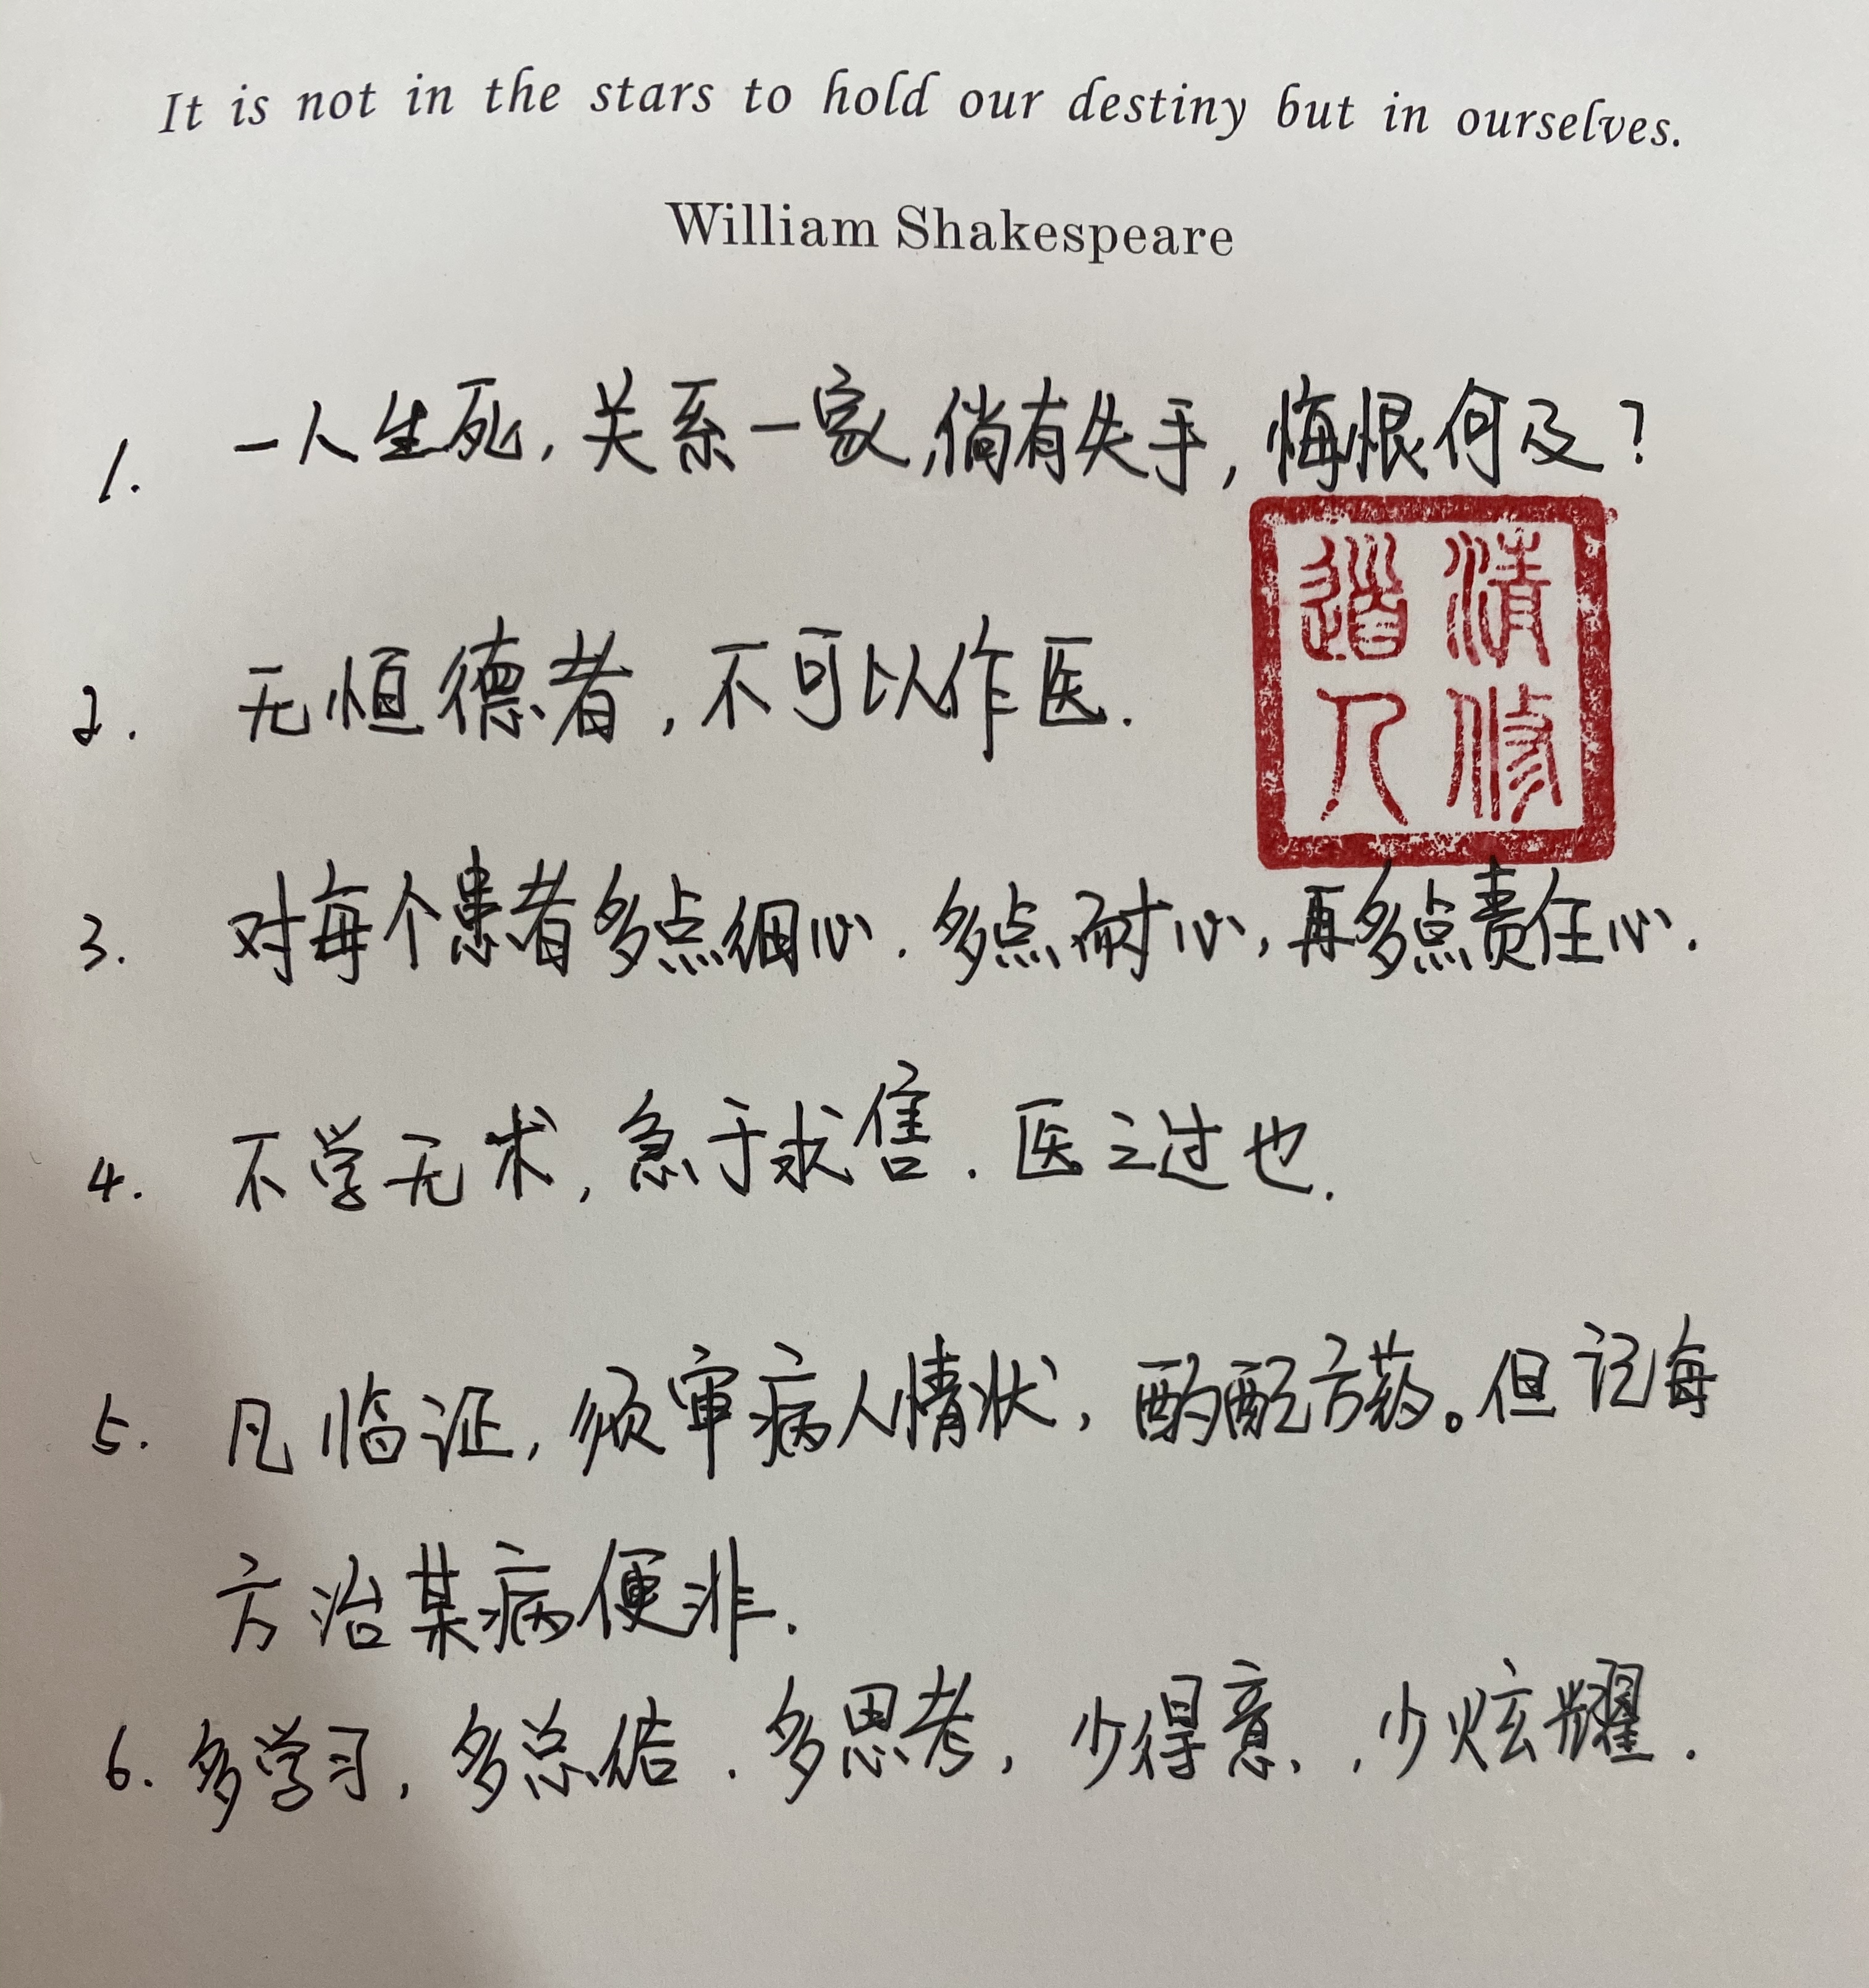 It is not in the stars to hold our destiny but in ourselves.
William Shakespeare
1. 一人生死,关系一家,倘有失手,悔恨何及?
清修道人
2. 无恒德者,不可以作医.
3. 对每个患者多点细心.多点耐心,再多点责任心.
4. 不学无术,急于求售.医之过也.
5. 凡临证,须审病人情状,酌配方药。但记每
方治某病便非.
6. 多学习,多总结.多思考,少得意,,少炫耀.